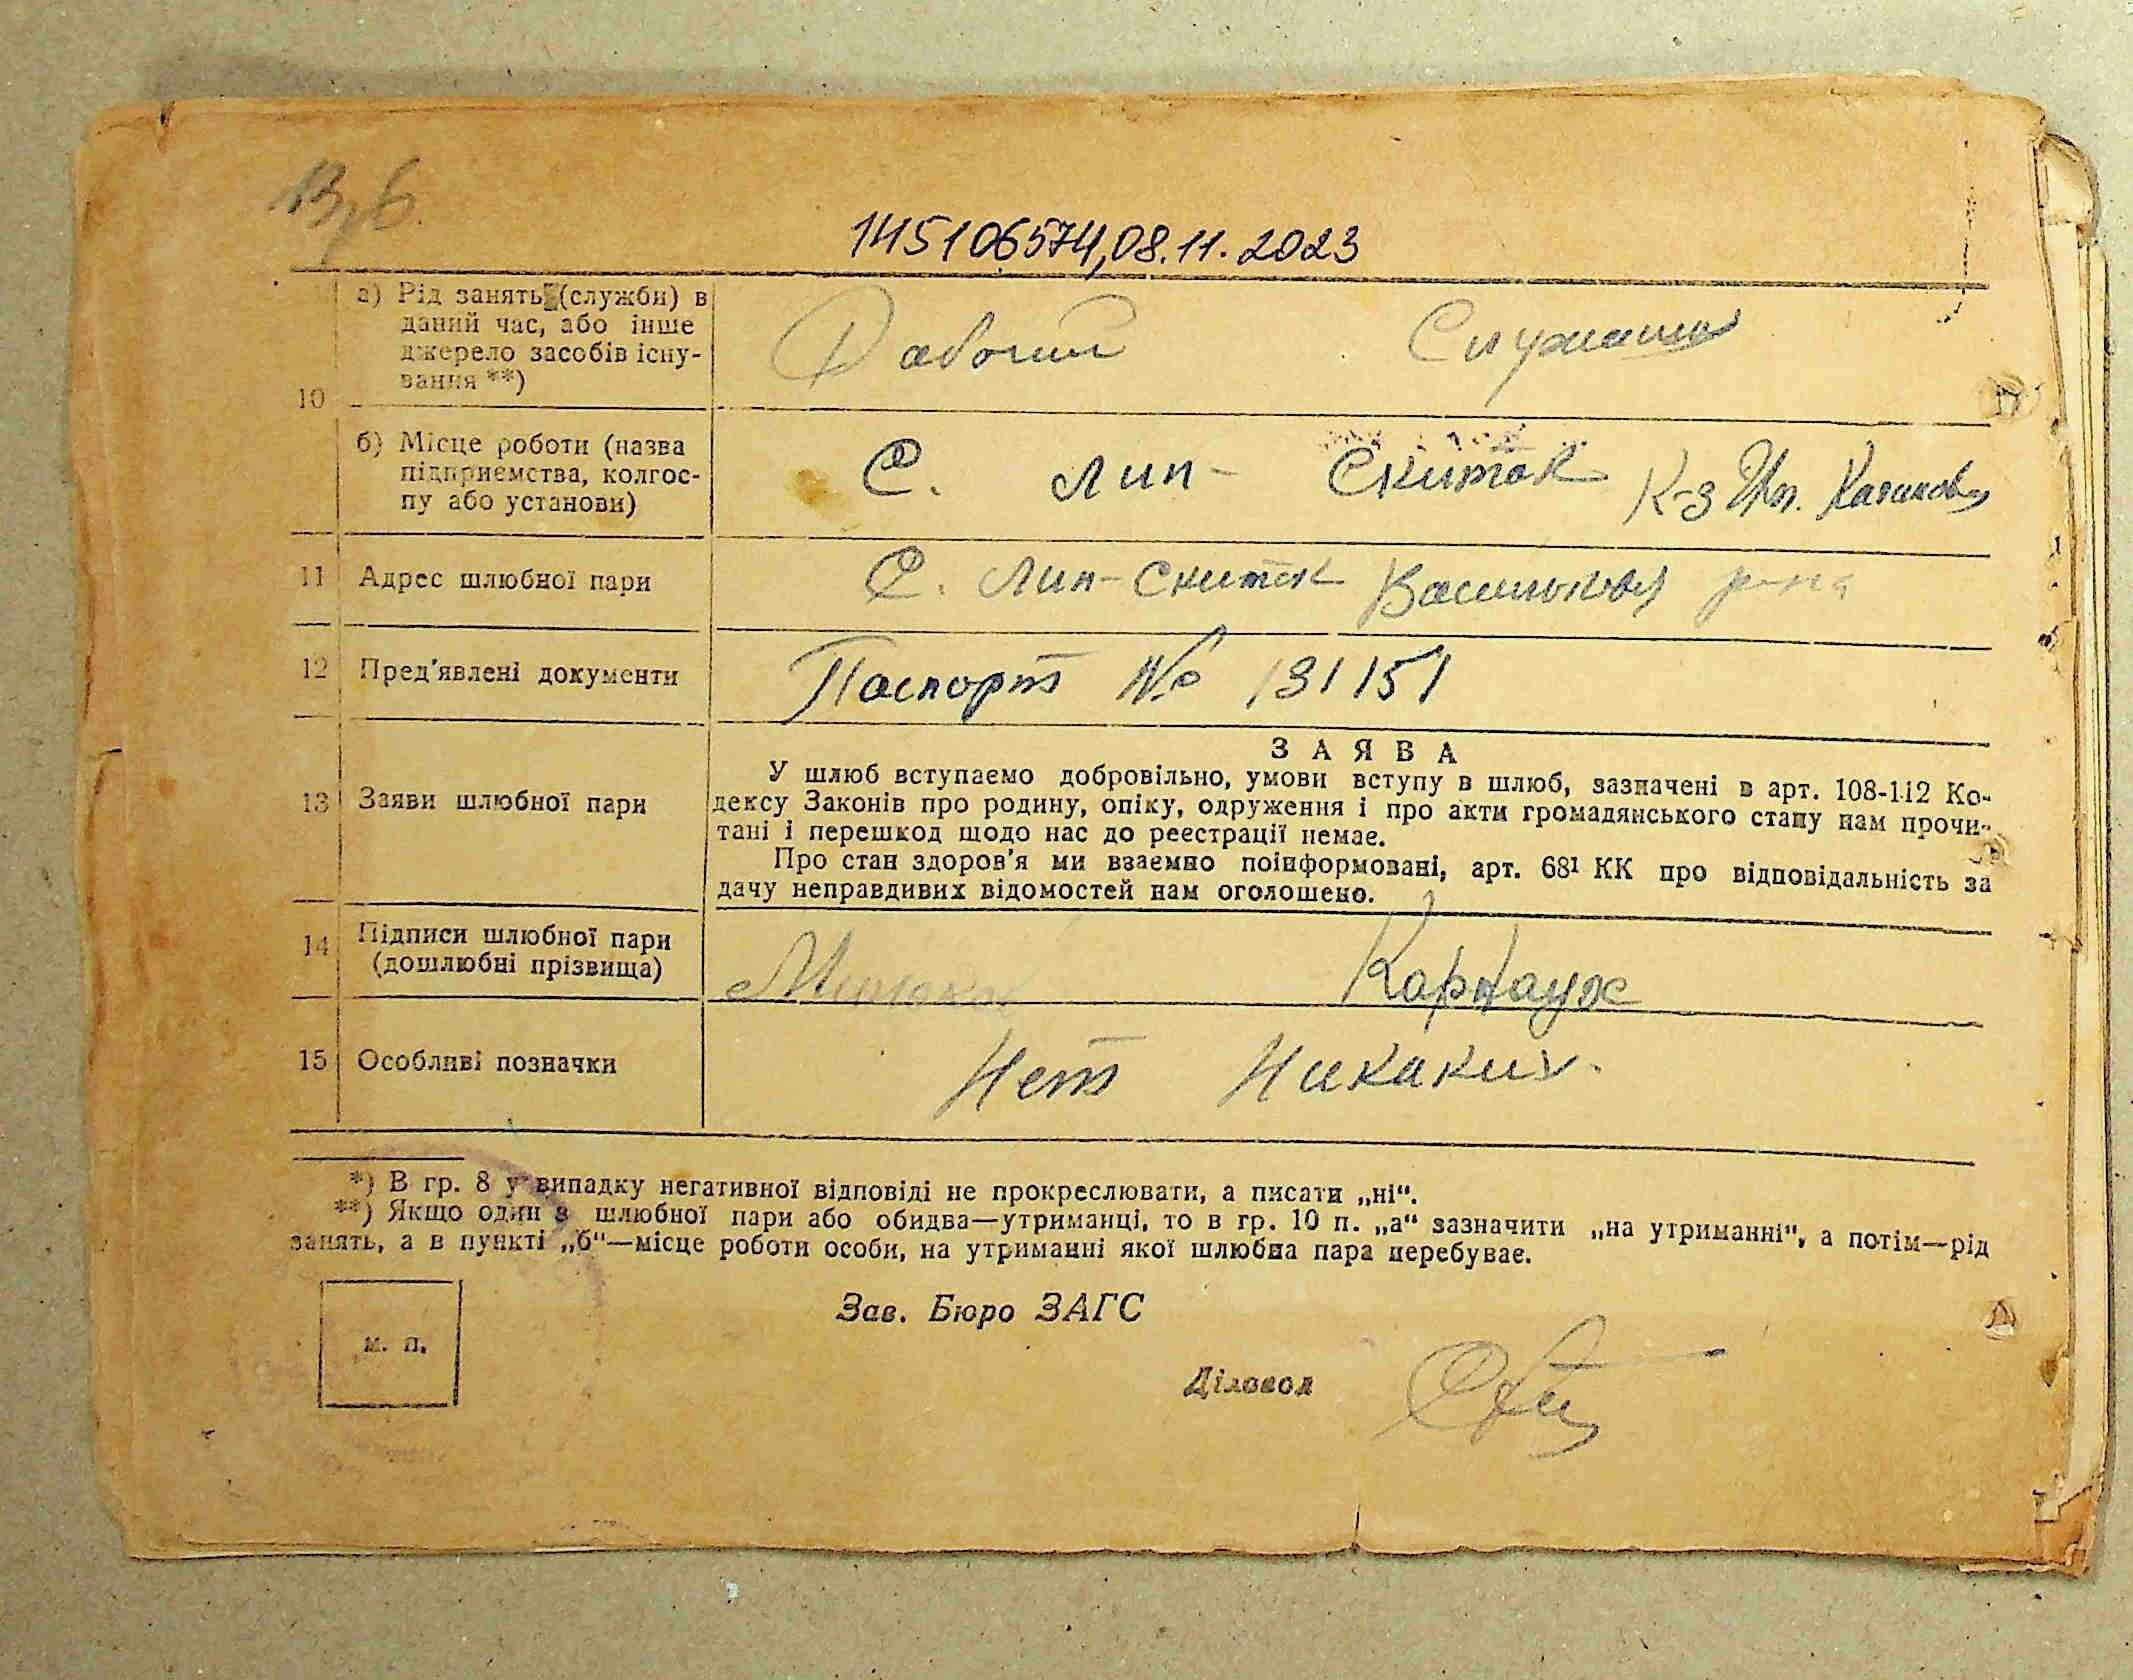 145106574, 08.11.2023
10
а) Рід занять (служби) в
даний час, або інше
джерело засобів існу-
вання **)
Рабочий Служащая
б) Місце роботи (назва
підприємства, колгос-
пу або установи)
С. Лип- Скиток К-з Им.
11 Адрес шлюбної пари
С. Лип-Скиток
12 Пред'явлені документи
Паспорт № 131151
13 Заяви шлюбної пари
ЗАЯВА
У шлюб вступаємо добровільно, умови вступу в шлюб, зазначені в арт. 108-112 Ко-
дексу Законів про родину, опіку, одруження і про акти громадянського стану нам прочи-
тані і перешкод щодо нас до реєстрації немає.
Про стан здоров'я ми взаємно поінформовані, арт. 68¹ КК про відповідальність за
дачу неправдивих відомостей нам оголошено.
14 Підписи шлюбної пари
(дошлюбні прізвища)
Карнаух
15 Особливі позначки
Нет Никаких.
*) В гр. 8 у випадку негативної відповіді не прокреслювати, а писати „ні“.
**) Якщо один з шлюбної пари або обидва—утриманці, то в гр. 10 п. „а“ зазначити „на утриманні“, а потім—рід
занять, а в пункті „б“—місце роботи особи, на утриманні якої шлюбна пара перебуває.
Зав. Бюро ЗАГС
м. п.
Діловод